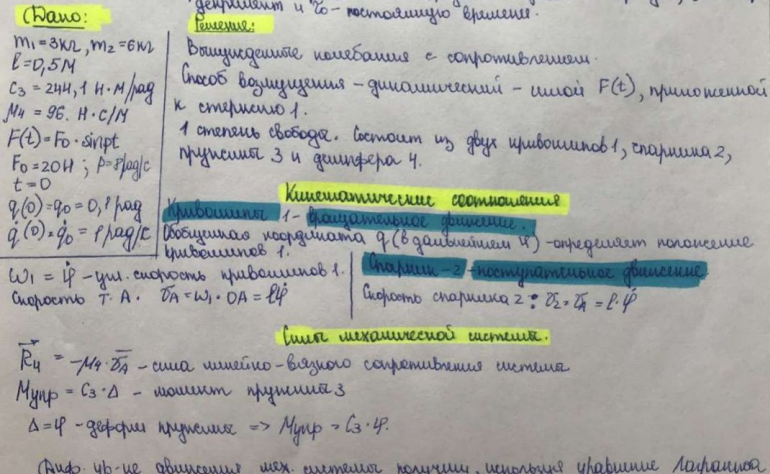 декремент и τ₀ - постоянную времени.
Дано:
m₁ = 3кг, m₂ = 6кг
l = 0,5м
c₃ = 244,1 Н·м/рад
μ₄ = 96. Н·с/м
F(t) = F₀ · sinpt
F₀ = 20Н ; p = 8рад/с
t = 0
q(0) = q₀ = 0,1 рад
q̇(0) = q̇₀ = 1 рад/с
Решение:
Вынужденные колебания с сопротивлением.
Способ возмущения - динамический - силой F(t), приложенной
к стержню 1.
1 степень свобода. Состоит из двух кривошипов 1, спарника 2,
пружины 3 и демпфера 4.
Кинематические соотношения
Кривошипы 1 - вращательное движение.
Обобщенная координата q (в дальнейшем φ) - определяет положение
кривошипов 1.
ω₁ = φ̇ - угл. скорость кривошипов 1.
Скорость т. A. v̄A = ω₁ · OA = lφ̇
Спарник - 2 - поступательное движение
Скорость спарника 2 : v̄₂ = v̄A = l · φ̇
Силы механической системы.
R₄ = -μ₄ · v̄A - сила линейно-вязкого сопротивления системы
Mупр = c₃ · Δ - момент пружины 3
Δ = φ - деформ пружины => Mупр = c₃ · φ.
Диф. ур-ие движения мех. системы получим, используя уравнение Лагранжа